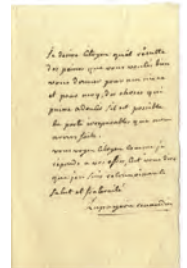 Je desire Citoyen qu'il résulte
des peines que vous voulés bien
vous donner pour mon
et pour moy, des choses qui
puisse adoucir s'il est possible
les perte irreparables que nous
avons faite.
vous voyez Citoyen comme je
réponds a vos offres, c'est vous dire
que j'en suis reconnoissante
Salut et fraternité